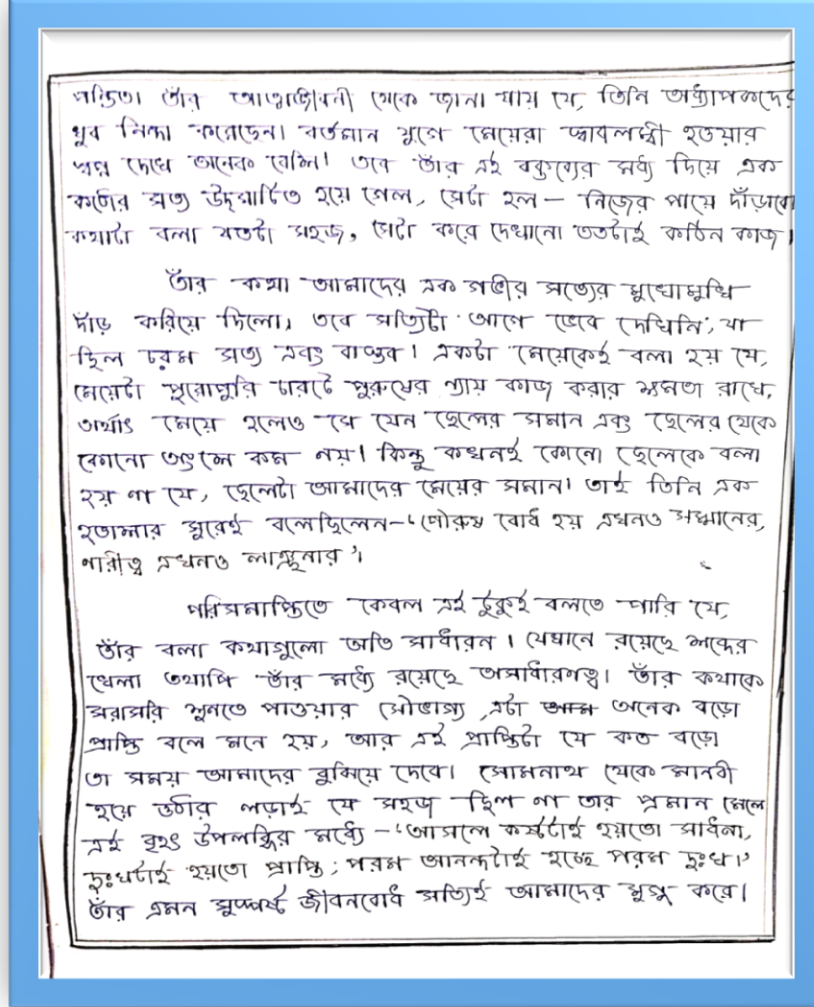 পণ্ডিত। তাঁর আত্মজীবনী থেকে জানা যায় যে, তিনি অধ্যাপকদের
খুব নিন্দা করেছেন। বর্তমান যুগে মেয়েরা স্বাবলম্বী হওয়ার
স্বপ্ন দেখে অনেক বেশি। তবে তাঁর এই বক্তব্যের মধ্য দিয়ে এক
কঠোর সত্য উদ্ঘাটিত হয়ে গেল, সেটা হল – নিজের পায়ে দাঁড়াবো
কথাটা বলা যতটা সহজ, সেটা করে দেখানো ততটাই কঠিন কাজ।
তাঁর কথা আমাদের এক গভীর সত্যের মুখোমুখি
দাঁড় করিয়ে দিলো, তবে সত্যিটা আগে ভেবে দেখিনি; যা
ছিল চরম সত্য এবং বাস্তব। একটা মেয়েকেই বলা হয় যে,
মেয়েটা পুরোপুরি চারটে পুরুষের ন্যায় কাজ করার ক্ষমতা রাখে,
অর্থাৎ মেয়ে হলেও সে যেন ছেলের সমান এবং ছেলের থেকে
কোনো অংশে কম নয়। কিন্তু কখনই কোনো ছেলেকে বলা
হয় না যে, ছেলেটা আমাদের মেয়ের সমান। তাই তিনি এক
হতাশার সুরেই বলেছিলেন–‘পৌরুষ বোধ হয় এখনও সম্মানের,
নারীত্ব এখনও লাঞ্ছনার’।
পরিসমাপ্তিতে কেবল এই টুকুই বলতে পারি যে,
তাঁর বলা কথাগুলো অতি সাধারন। যেখানে রয়েছে শব্দের
খেলা তথাপি তাঁর মধ্যে রয়েছে অসাধারণত্ব। তাঁর কথাকে
সরাসরি শুনতে পাওয়ার সৌভাগ্য এটা অনেক বড়ো
প্রাপ্তি বলে মনে হয়, আর এই প্রাপ্তিটা যে কত বড়ো
তা সময় আমাদের বুঝিয়ে দেবে। সোমনাথ থেকে মানবী
হয়ে ওঠার লড়াই যে সহজ ছিল না তার প্রমান মেলে
এই বৃহৎ উপলব্ধির মধ্যে –‘আসলে কষ্টটাই হয়তো সাধনা,
দুঃখটাই হয়তো প্রাপ্তি; পরম আনন্দটাই হচ্ছে পরম দুঃখ।’
তাঁর এমন সুস্পষ্ট জীবনবোধ সত্যিই আমাদের মুগ্ধ করে।